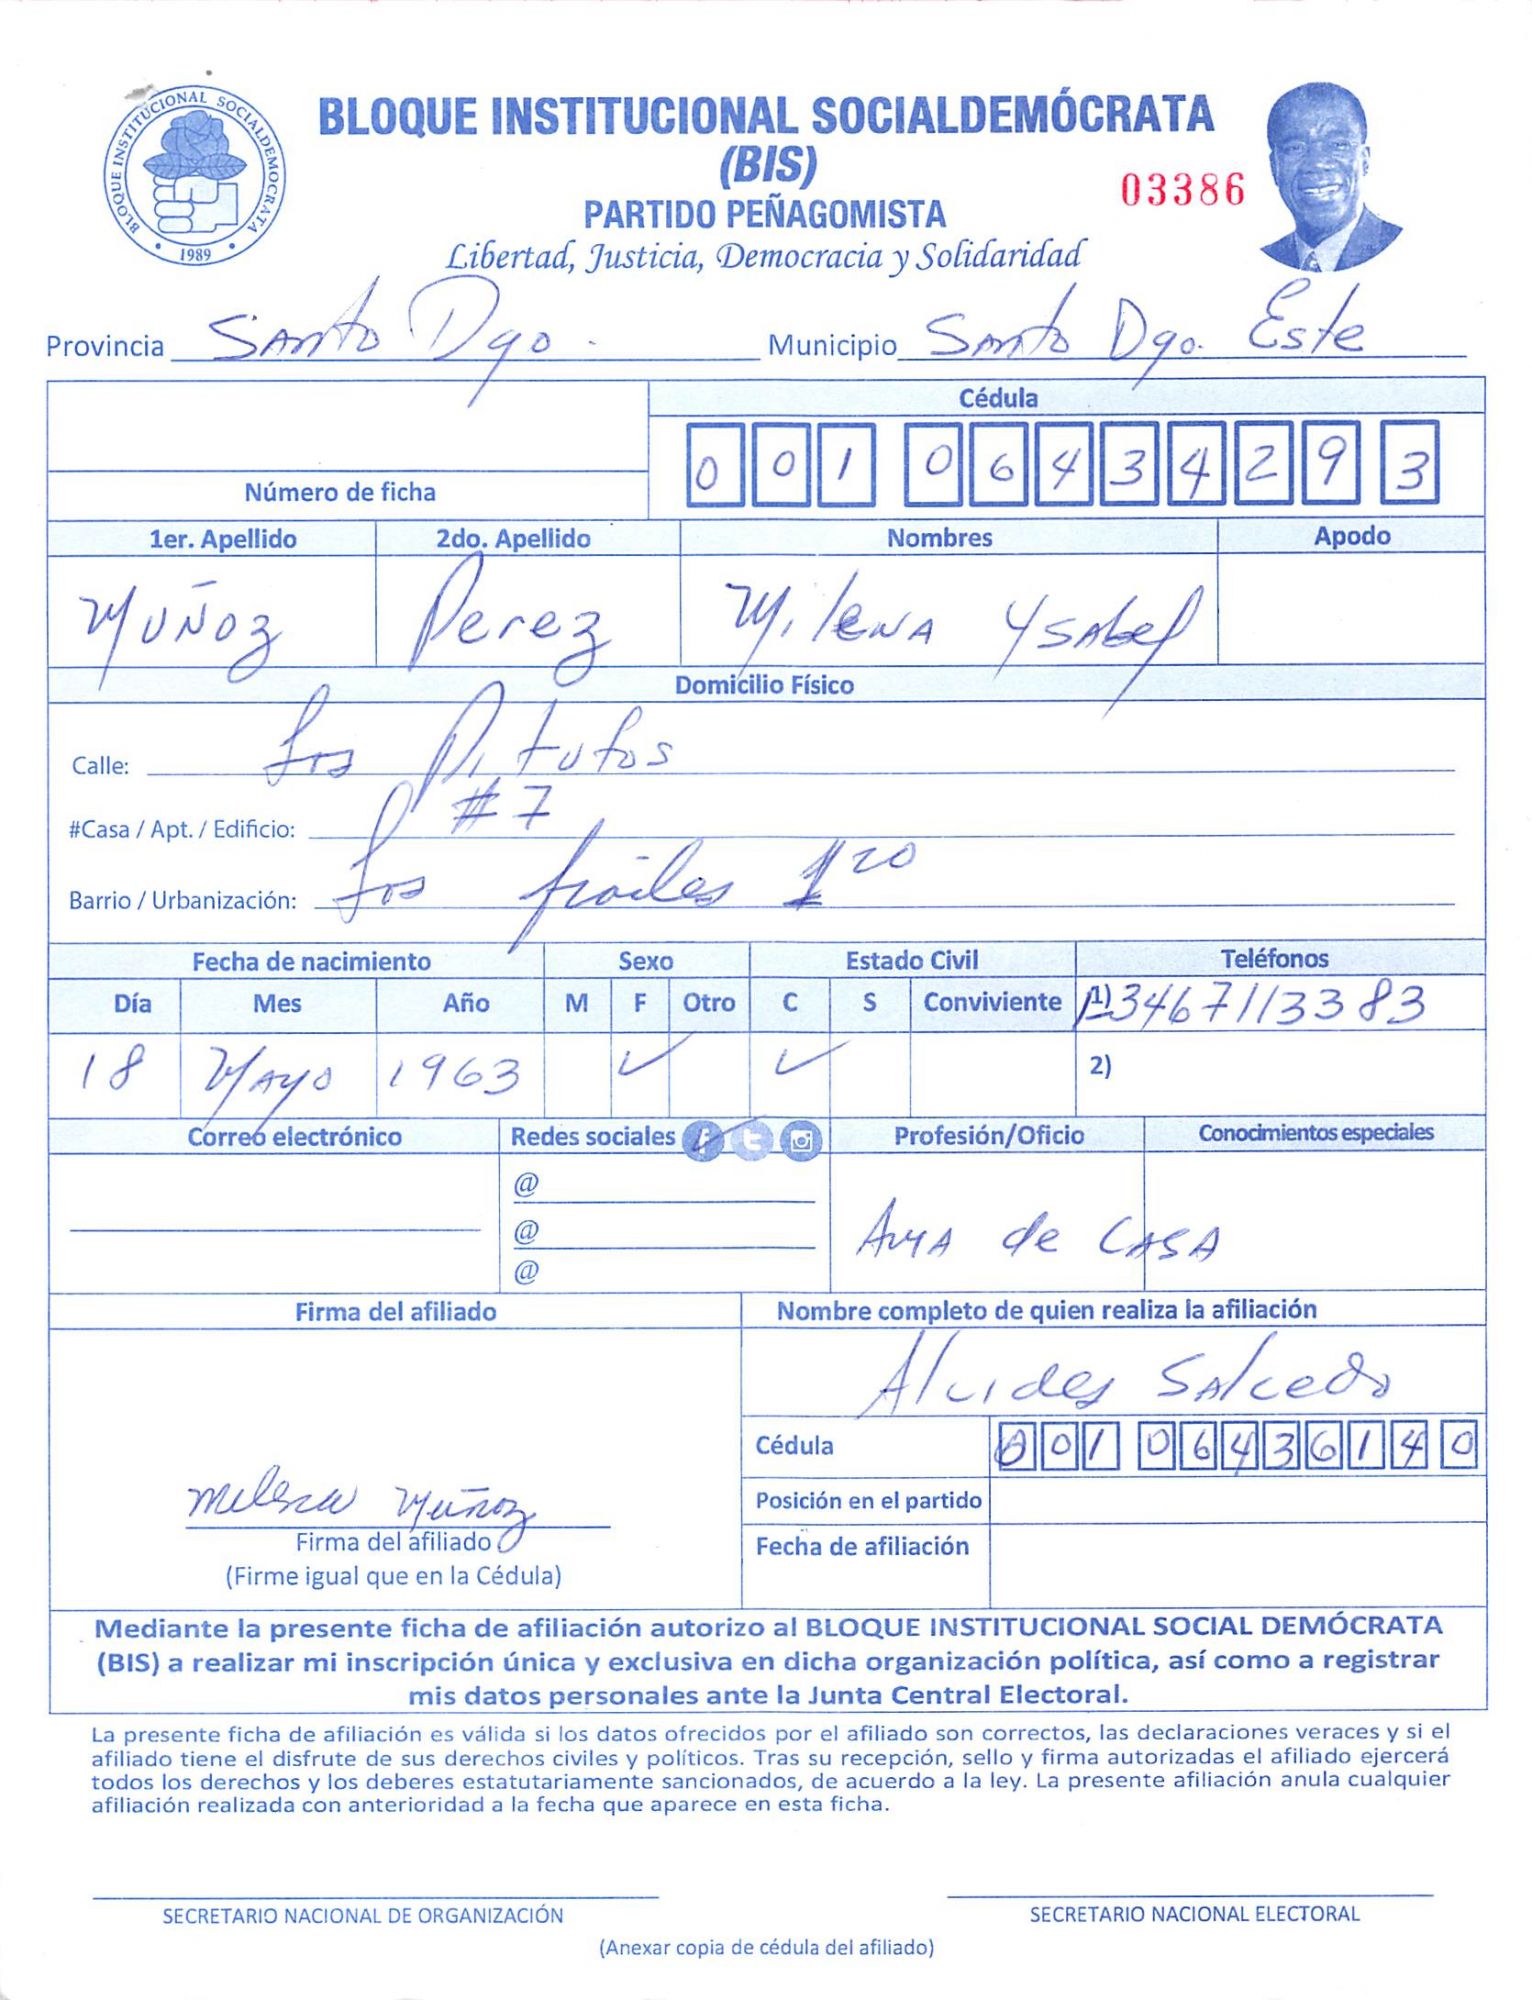 BLOQUE INSTITUCIONAL SOCIALDEMOCRATA
1989
BLOQUE INSTITUCIONAL SOCIALDEMÓCRATA
(BIS)
PARTIDO PEÑAGOMISTA
03386
Libertad, Justicia, Democracia y Solidaridad
Provincia Santo Dgo. Municipio Santo Dgo. Este
Cédula
0 0 1 0 6 4 3 4 2 9 3
Número de ficha
1er. Apellido 2do. Apellido Nombres Apodo
Muñoz Perez Milena Ysabel
Domicilio Físico
Calle: Los Pitufos
#Casa / Apt. / Edificio: #7
Barrio / Urbanización: Los frailes 1ro
Fecha de nacimiento Sexo Estado Civil Teléfonos
Día Mes Año M F Otro C S Conviviente 1) 34671133 83
18 Mayo 1963 ✓ ✓ 2)
Correo electrónico Redes sociales Profesión/Oficio Conocimientos especiales
@
@
@
Ama de CASA
Firma del afiliado Nombre completo de quien realiza la afiliación
Alcides Salcedo
Cédula 0 0 1 0 6 4 3 6 1 4 0
Posición en el partido
Milena Muñoz
Firma del afiliado
Fecha de afiliación
(Firme igual que en la Cédula)
Mediante la presente ficha de afiliación autorizo al BLOQUE INSTITUCIONAL SOCIAL DEMÓCRATA
(BIS) a realizar mi inscripción única y exclusiva en dicha organización política, así como a registrar
mis datos personales ante la Junta Central Electoral.
La presente ficha de afiliación es válida si los datos ofrecidos por el afiliado son correctos, las declaraciones veraces y si el
afiliado tiene el disfrute de sus derechos civiles y políticos. Tras su recepción, sello y firma autorizadas el afiliado ejercerá
todos los derechos y los deberes estatutariamente sancionados, de acuerdo a la ley. La presente afiliación anula cualquier
afiliación realizada con anterioridad a la fecha que aparece en esta ficha.
SECRETARIO NACIONAL DE ORGANIZACIÓN SECRETARIO NACIONAL ELECTORAL
(Anexar copia de cédula del afiliado)